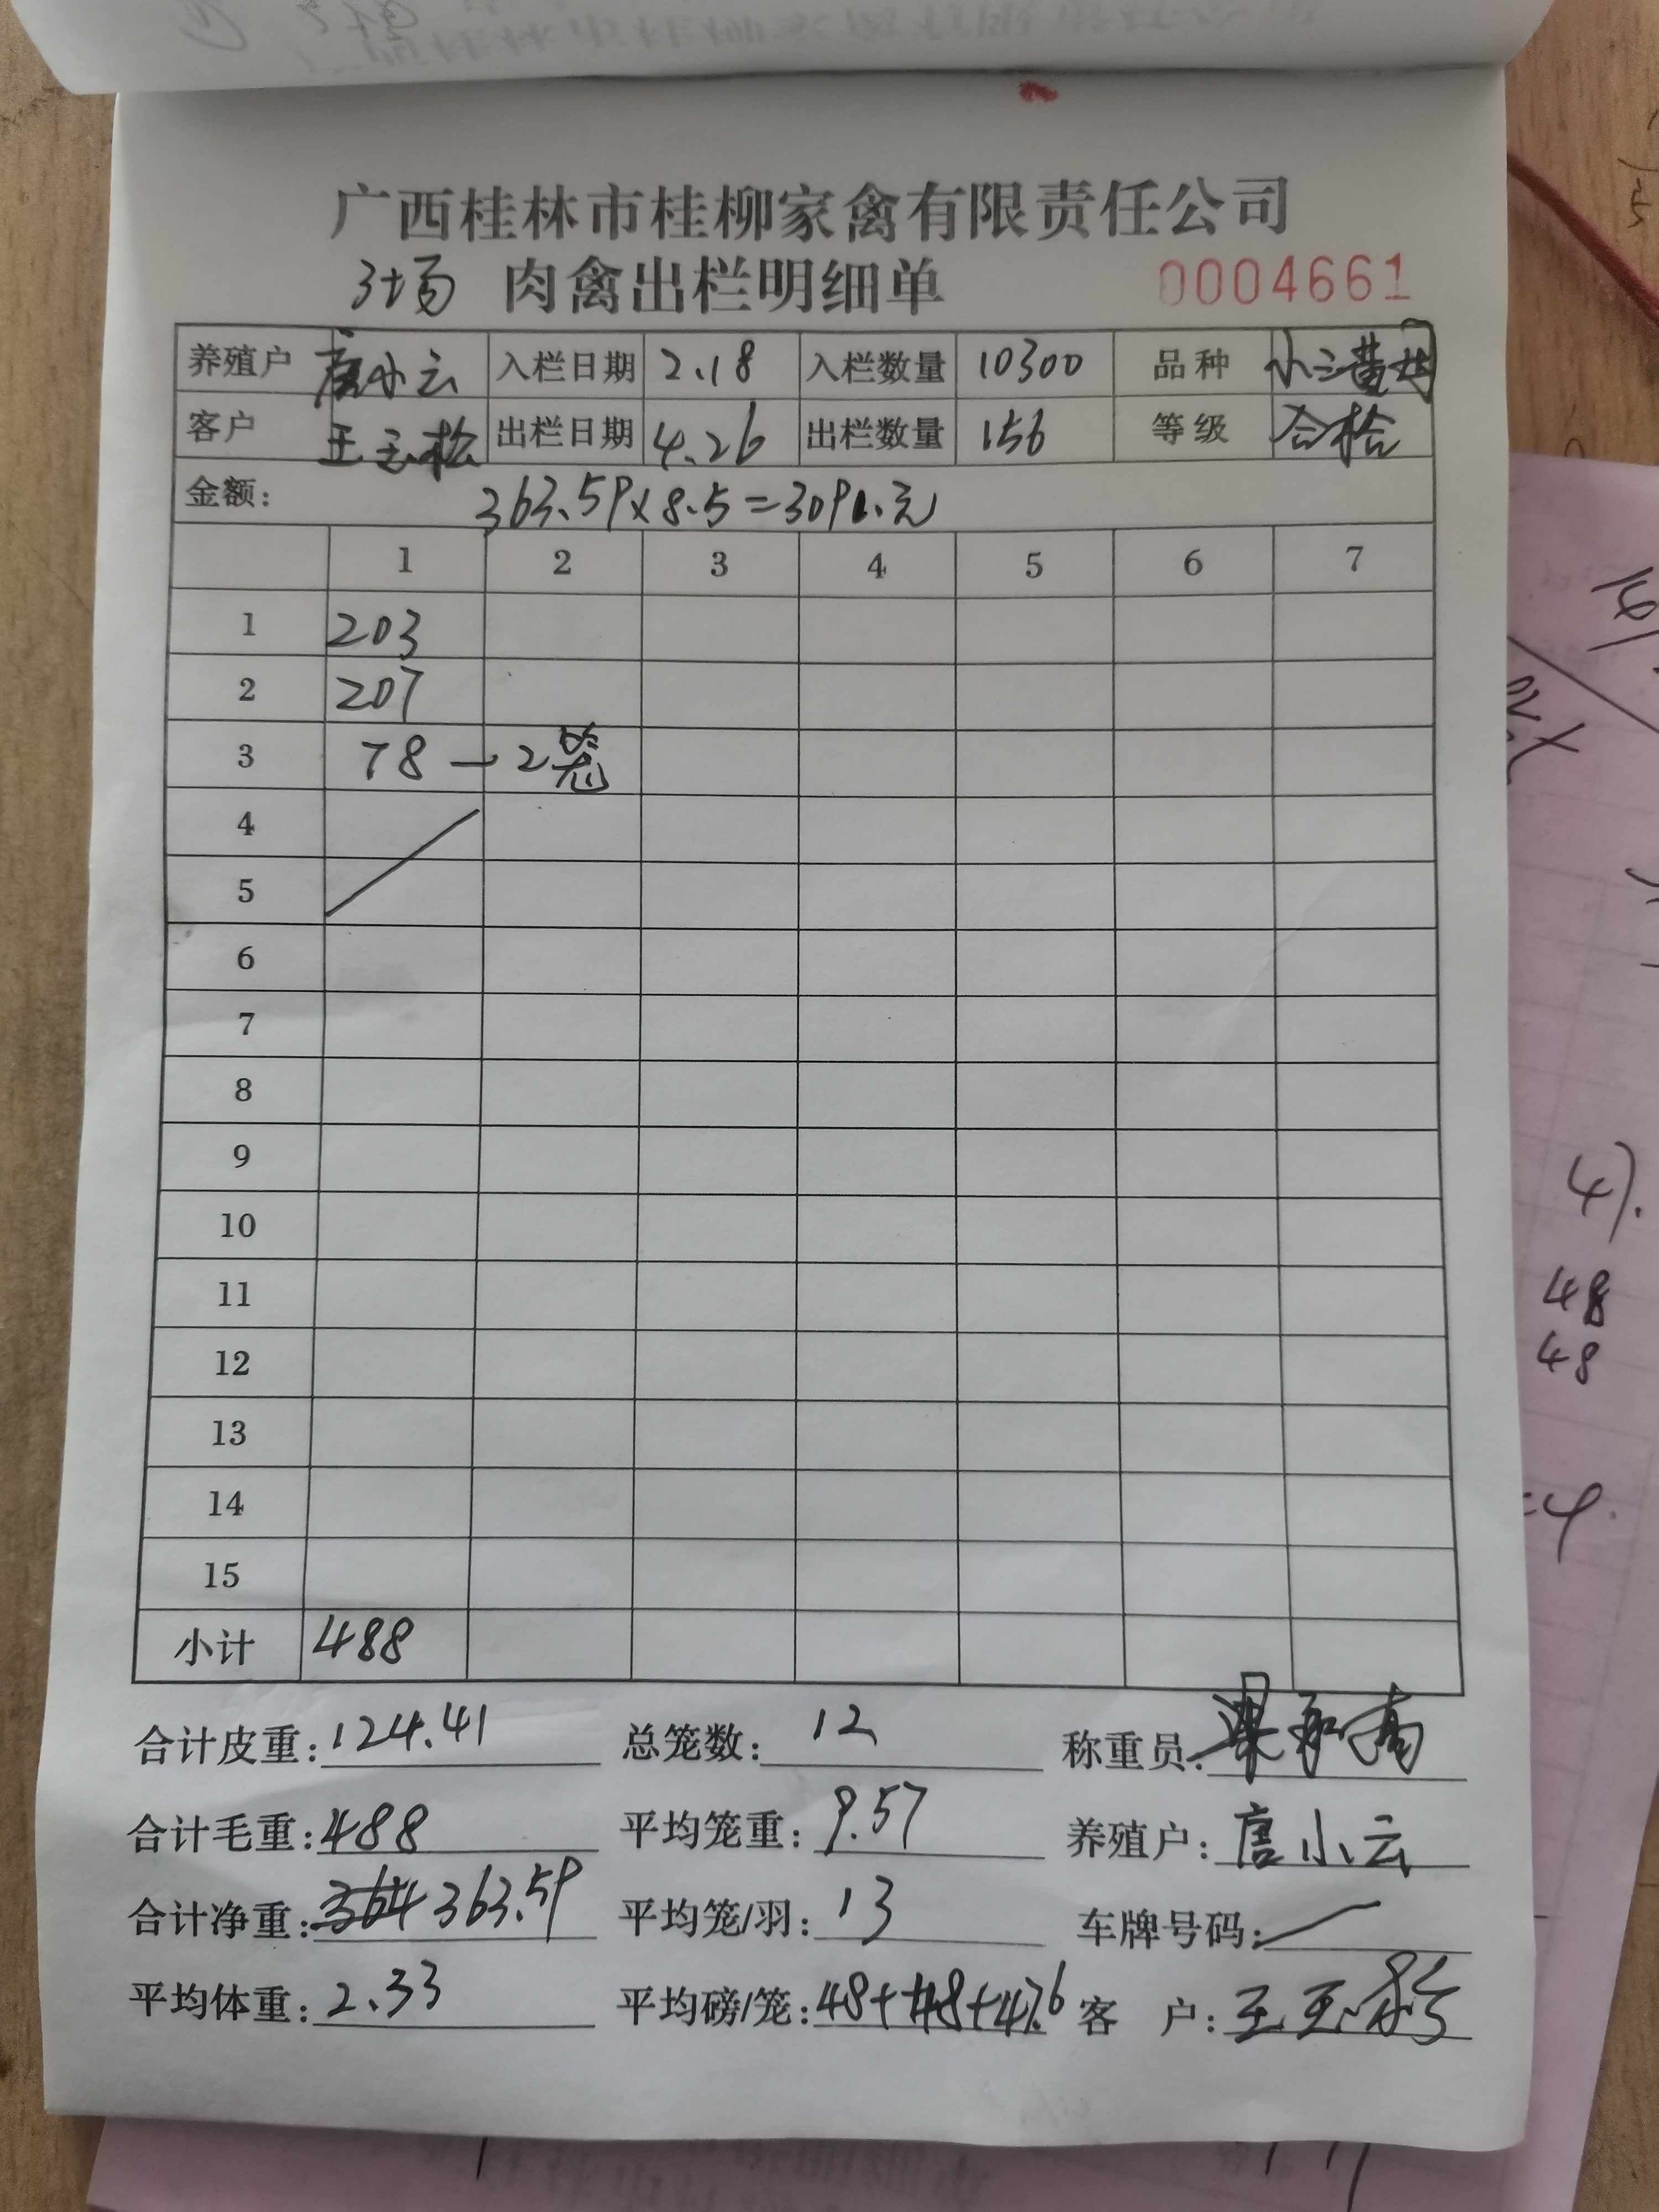 广西桂林市桂柳家禽有限责任公司
3场 肉禽出栏明细单 0004661
养殖户 唐小云 入栏日期 2.18 入栏数量 10300 品种 小三黄母
客户 王玉松 出栏日期 4.26 出栏数量 156 等级 合格
金额: 363.59×8.5=3091.元
1 2 3 4 5 6 7
1 203
2 207
3 78 — 2笼
4
5
6
7
8
9
10
11
12
13
14
15
小计 488
合计皮重: 124.41 总笼数: 12 称重员:
合计毛重: 488 平均笼重: 9.57 养殖户: 唐小云
合计净重: 364 363.59 平均笼/羽: 13 车牌号码:
平均体重: 2.33 平均磅/笼: 48+48+47.6 客 户: 王玉松
48
48